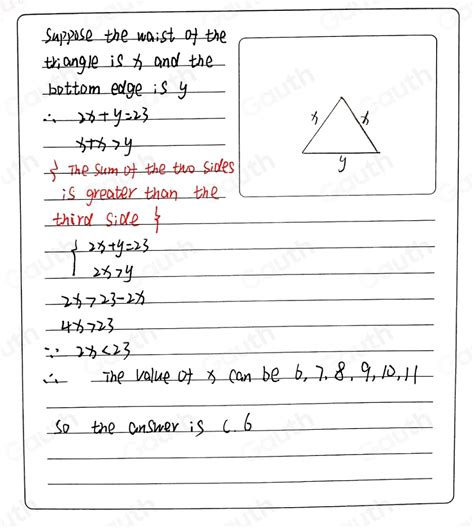 Suppose the waist of the
triangle is x and the
bottom edge is y
∴ 2x+y=23
x+x>y
{ The sum of the two sides
is greater than the
third side }
{ 2x+y=23
2x>y
2x>23-2x
4x>23
∵ 2x<23
∴ The value of x can be 6,7.8,9,10,11
so the answer is C.6
x
x
y
Gauth